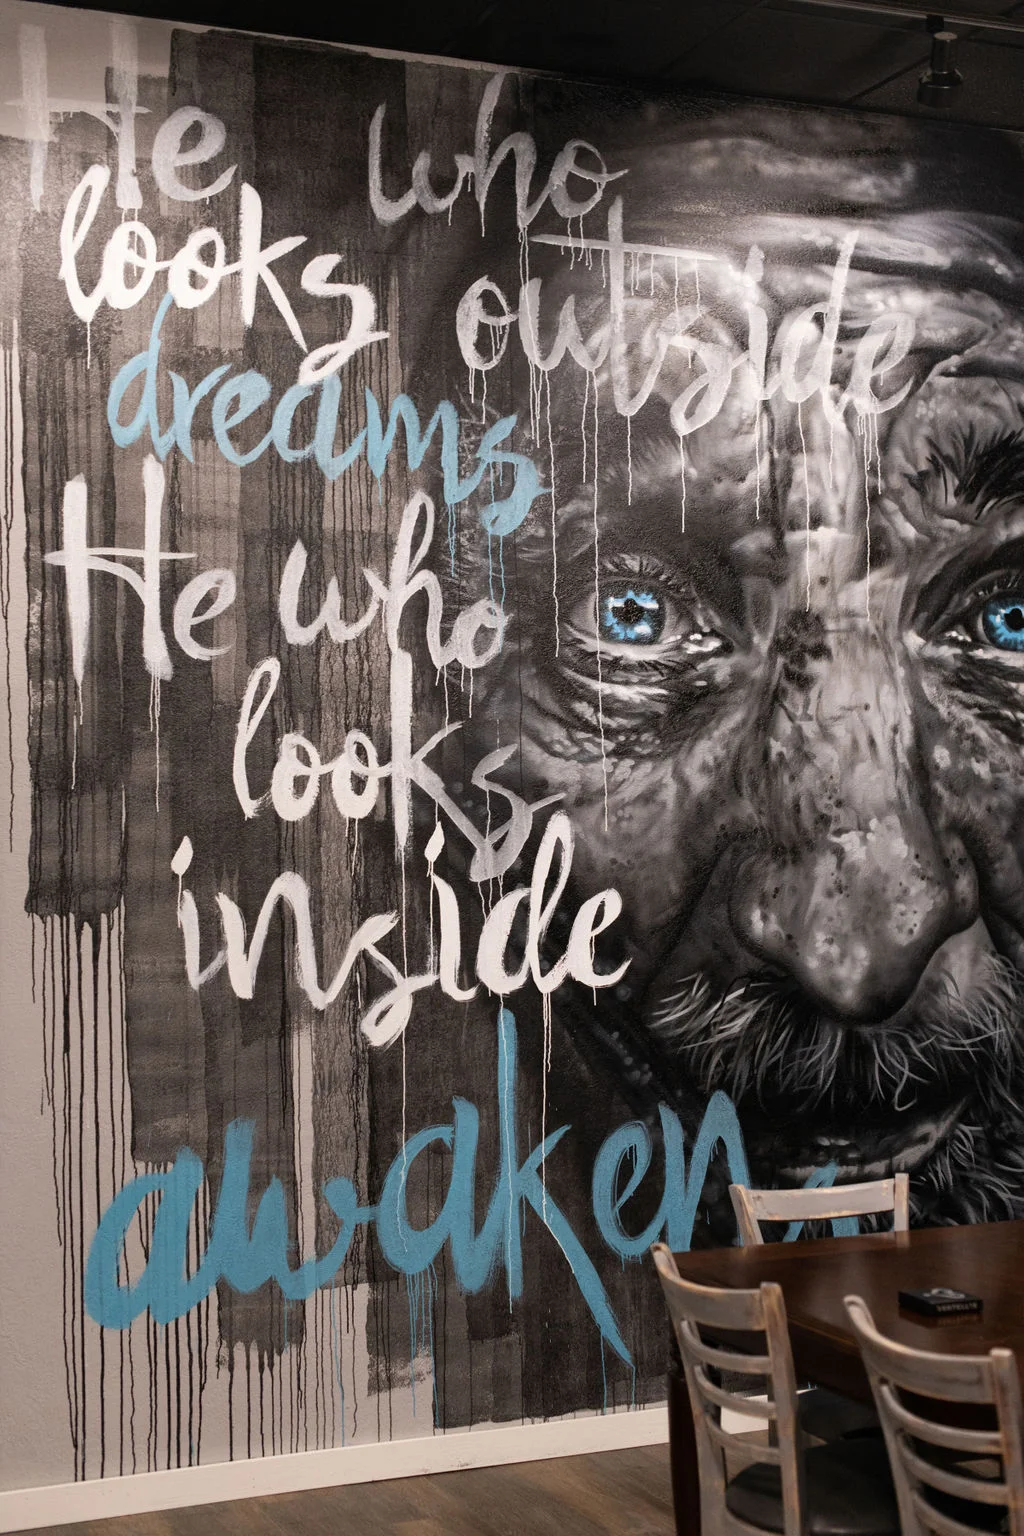 He who
looks outside
dreams
He who
looks
inside
awakens